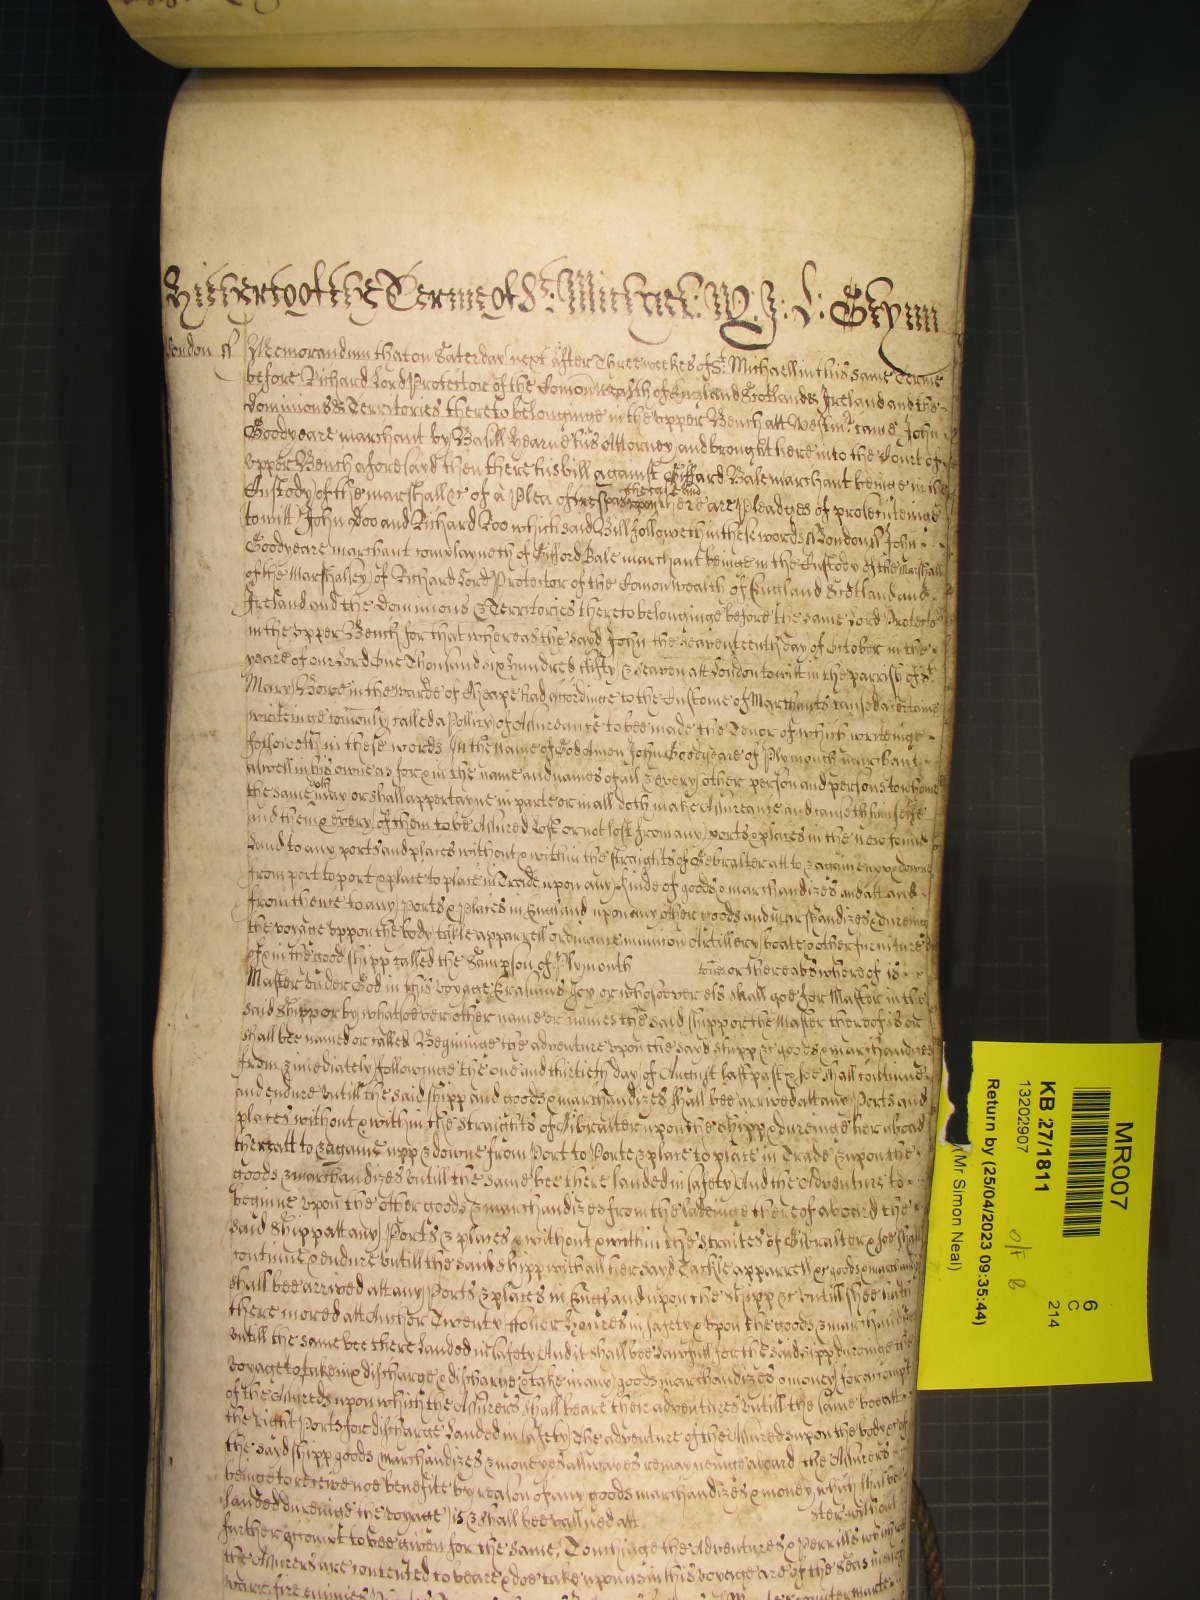 Hitherto of the Terme of St: Michael: W: J: L: Glynn
London ss Memorandum that on Saterday next after Three weekes of St: Michaell in this same Terme
before Richard Lord Protector of the Comonwealth of England Scotland & Ireland and the
dominions & Territories thereto belonginge in the vpper Bench att Westmr: came John
Goodyeare marchant by Basill Hearne his Attorney and brought here into the Court of
vpper Bench aforesayd then there his bill against Giffard Bale marchant beinge in the
Custody of the marshall &c of a Plea of trespas vpon the case and there are Pleadges of prosecuteinge
to witt John Doo and Richard Roo which said Bill followeth in these words ss London ss John
Goodyeare marchant complayneth of Gifford Bale marchant beinge in the Custody of the Marshall
of the Marshalsey of Richard Lord Protector of the Comonwealth of England Scotland and
Ireland and the dominions & Territories thereto belonginge before the same Lord Protector
in the vpper Bench for that whereas the sayd John the Seaventeenth day of October in the
yeare of our Lord One Thousand six hundred fifty & Seaven att London to witt in the parrish of St.
Mary Bowe in the warde of Cheape had accordinge to the Custome of Marchants caused a certaine
writeinge comonly called a Pollicy of Assureance to bee made the Tenor of which writeinge
followeth in these words In the Name of God Amen John Goodyeare of Plymouth marchant
aswell in his owne as for & in the name and names of all & every other person and persons to whome
the same doth may or shall appertayne in parte or in all doth make Assureance and causeth himselfe
and them & every of them to be Assured Lost or not lost from any ports & places in the New found
Land to any ports and places without & within the straights of Gebralter att to & againe vpp & downe
from port to port & place to place in Trade vpon any kinde of goods & marchandizes and att and
from thence to any Ports & Places in England vpon any other goods and marchandizes & dureing
the voyage vppon the body takle apparrell ordinance munition Artillery boate & other furniture
of & in the good shipp called the Sampson of Plymouth tons or thereabs whereof is
Master vnder God in this voyage Erasmus Joy or whosoever els shall goe for Master in the
said Shipp or by whatsoever other name or names the said shipp or the Master thereof is or
shall bee named or called Beginninge the adventure vpon the sayd shipp &c goods & marchandizes
from & imediately followinge the one and thirtieth day of August last past & soe shall continue
and endure vntill the said shipp and goods & marchandizes shall bee arrived att any Ports and
places without & within the straights of Gibralter vpon the shipp & dureinge her aboad
there att to & againe vpp & downe from Port to Porte & place to place in Trade & vpon the
goods & marchandizes vntill the same bee there landed in safety And the Adventure to
beginne vpon the other goods & marchandizes from the ladeinge thereof aboard the
said Shipp att any Ports & places & without & within the straites of Gibralter & soe shall
continue & endure vntill the said shipp with all her sayd Tackle apparrell &c goods & marchandizes
shall bee arrived att any Ports & places in England vpon the Shipp &c vntill shee hath
there mored att Anchor Twenty ffower houres in safety & vpon the goods & marchandizes
vntill the same bee there Landed in Safety And it shall bee Lawfull for the said shipp dureinge the
voyage to take in & discharge & discharge & take in any goods marchandizes & money for accompt
of the Assureds vpon which the Assurers shall beare their adventures vntill the same bee att
the right Ports for discharge Landed in safety The adventure of the Assured vpon the body &c of
the sayd shipp goods marchandizes & moneyes allwayes remayneinge aboard the Assurers
beinge to receive noe benefitt by reason of any goods marchandizes & money which shall bee
landed dureinge the voyage is & shall bee vallued att ster without
further accompt to bee given for the same, Touchinge the Adventures & Perrills which
the Assurers are contented to beare & doe take vpon us in this voyage are of the Seas men of
warr, fire enimies
MR007
KB 27/1811
13202907
Return by (25/04/2023 09:35:44)
(Mr Simon Neal)
6
C
214
O/F B